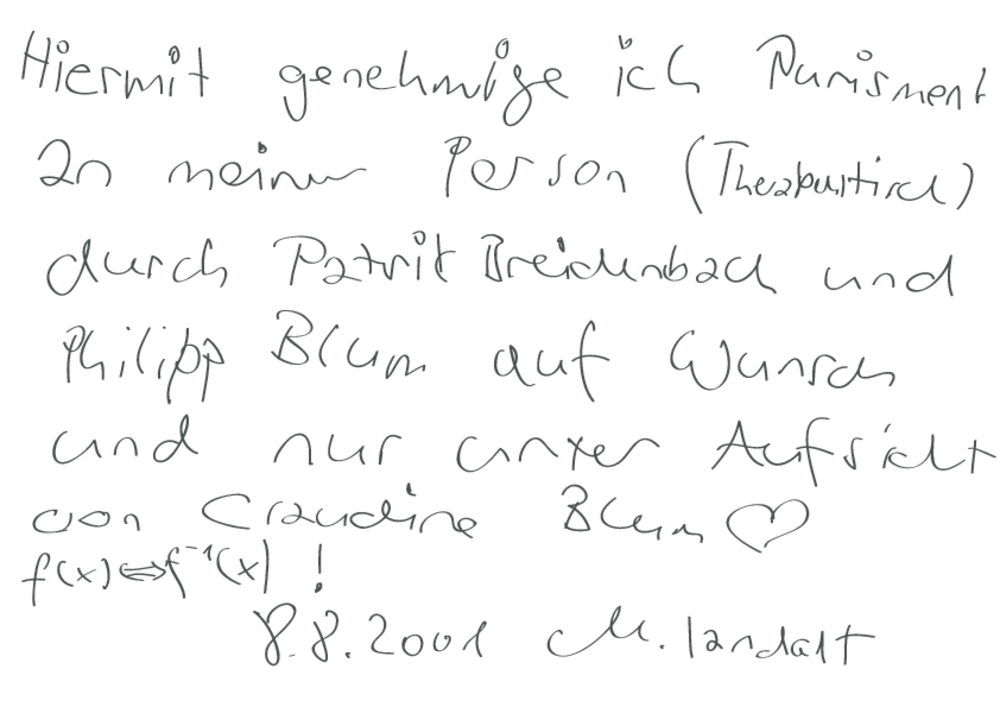 Hiermit genehmige ich Punisment
an meiner Person
durch Patrik Breidenbach und
Philipp Blum auf Wunsch
und nur unter Aufsicht
von Claudine Blum ♡
f(x)⇔f⁻¹(x) !
8.8.2001 M. landalt